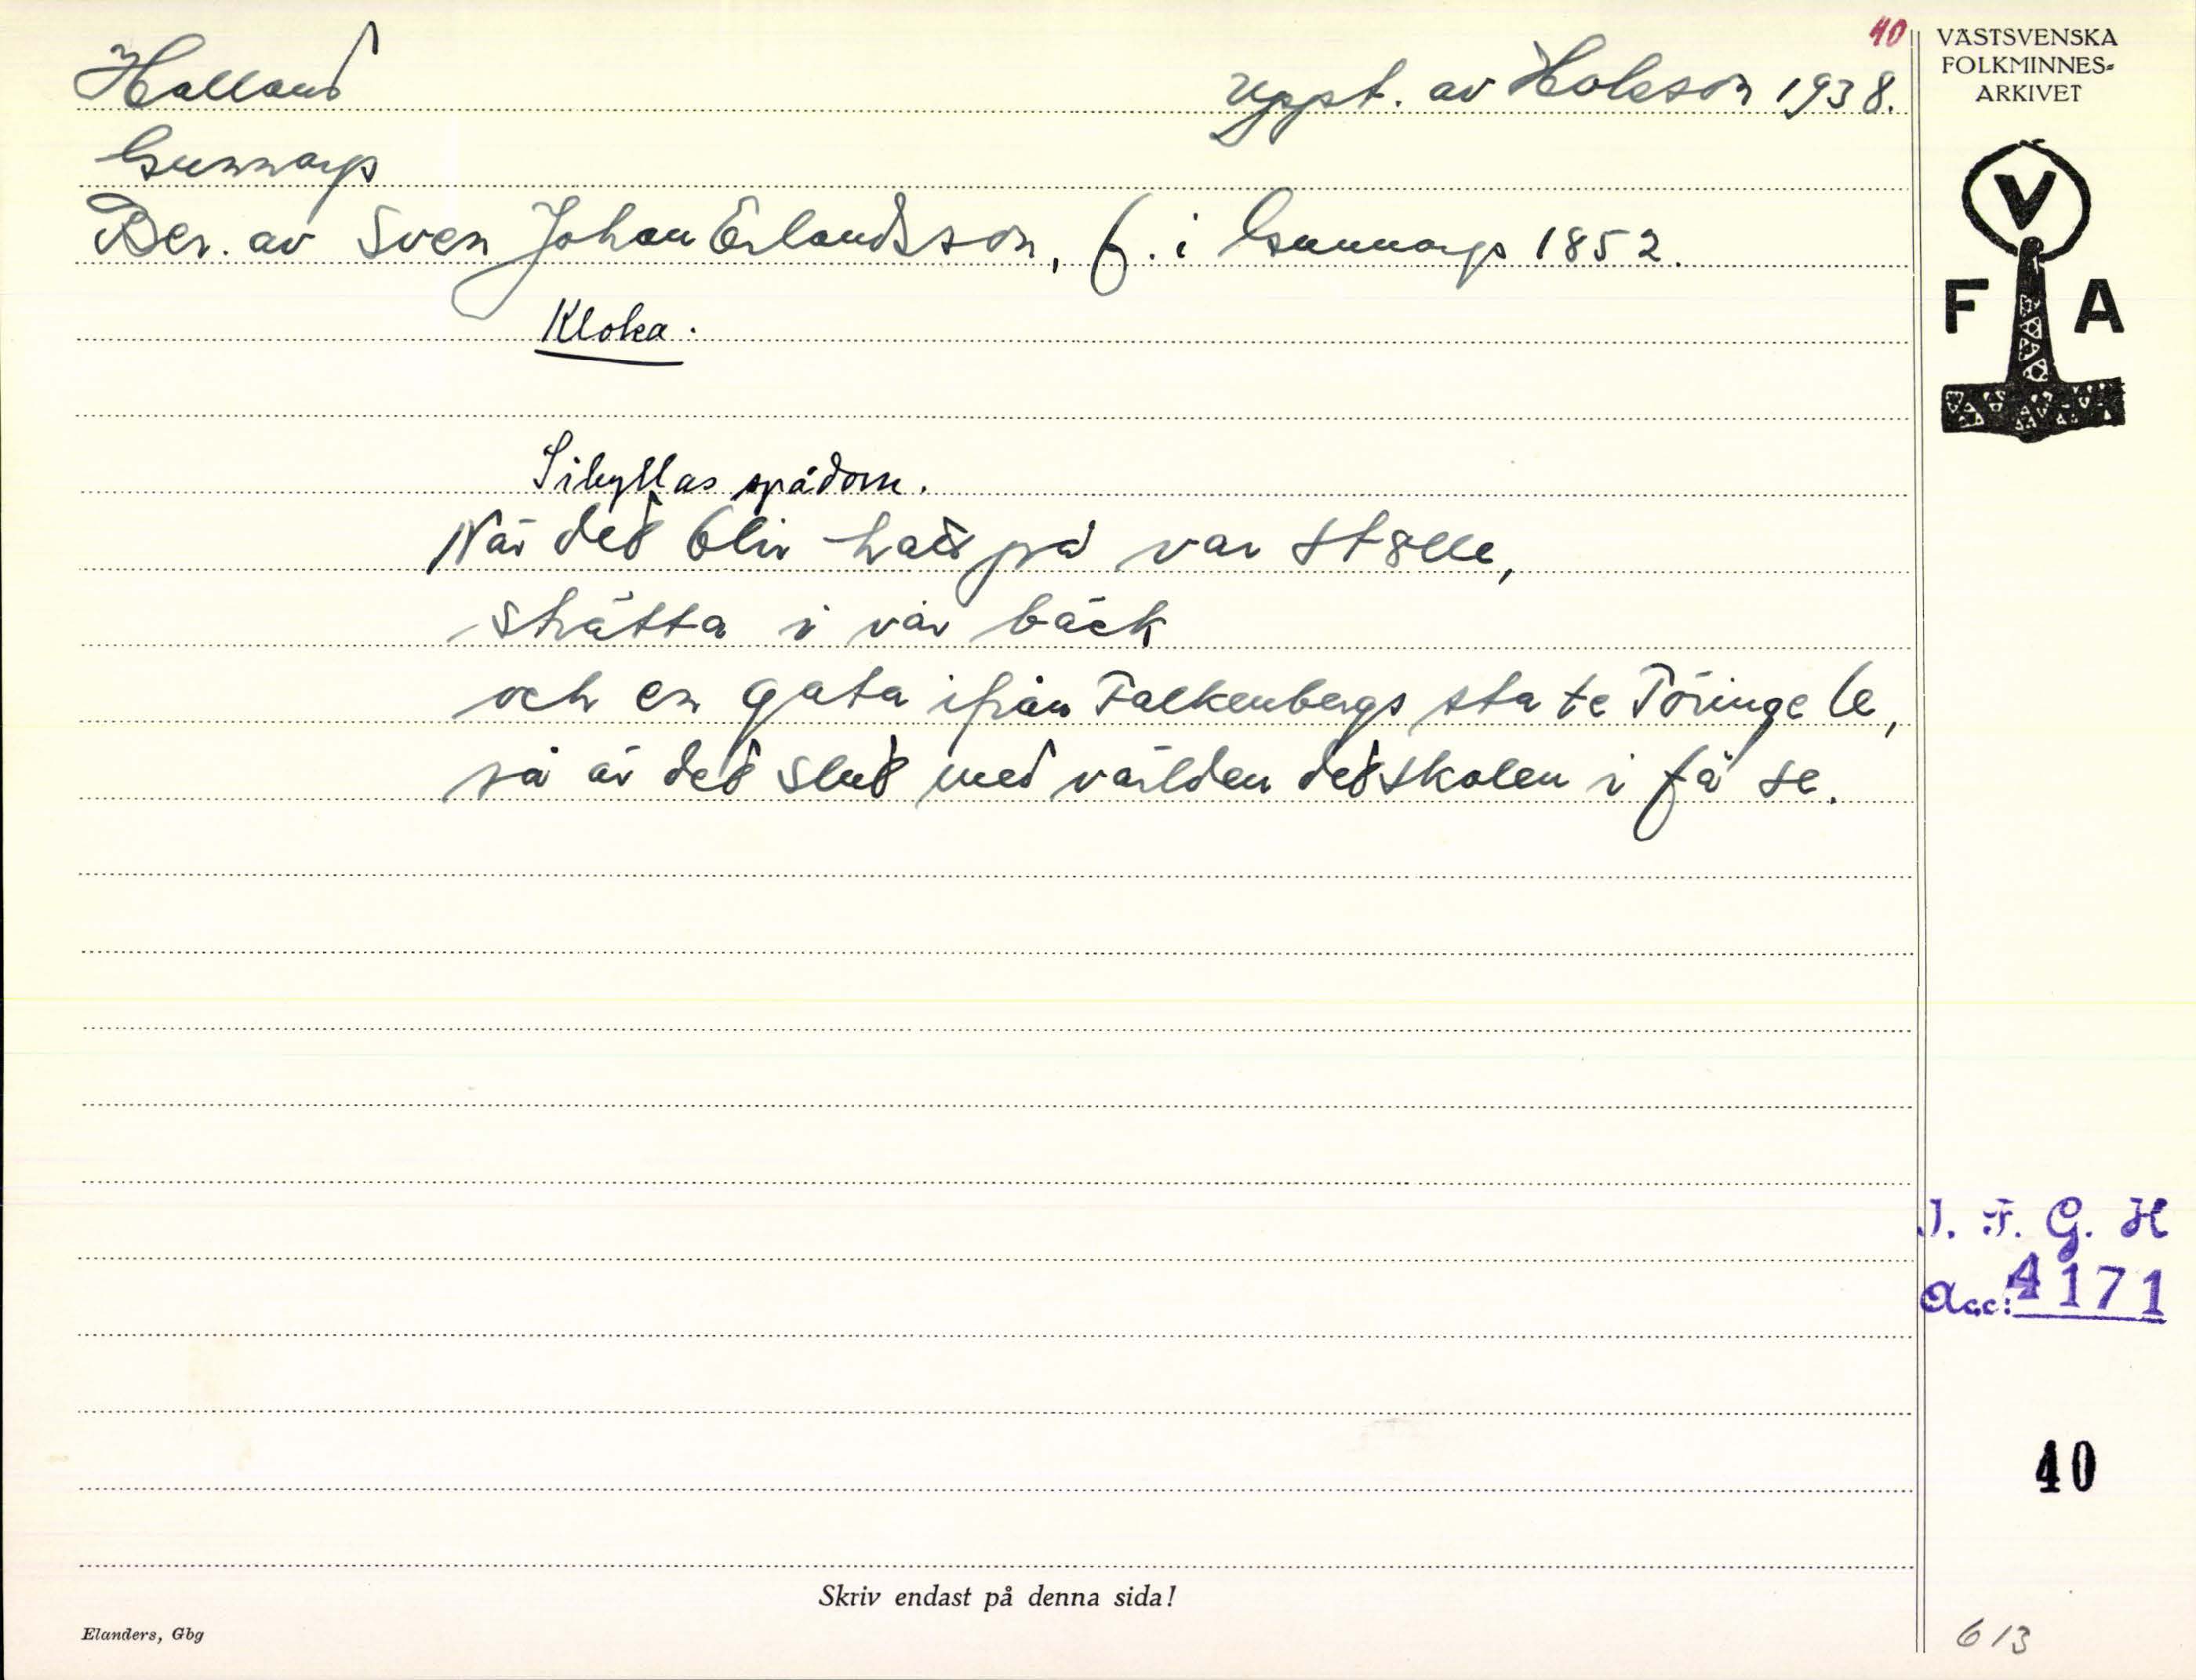 40
Halland
Uppt. av Holsson 1938.
Gunnarp
Ber. av Sven Johan Erlandsson, f. i Gunnarp 1852.
Kloka.
Sibyllas spådom.
När det blir hall på var ställe,
skätta i vår bäck
och en gata ifrån Falkenbergs sta te Töringe le,
så är det slut med världen det skolen i få se.
VÄSTSVENSKA
FOLKMINNES-
ARKIVET
V
F A
I. F. G. H
Acc: 4171
40
Skriv endast på denna sida!
Elanders, Gbg
613